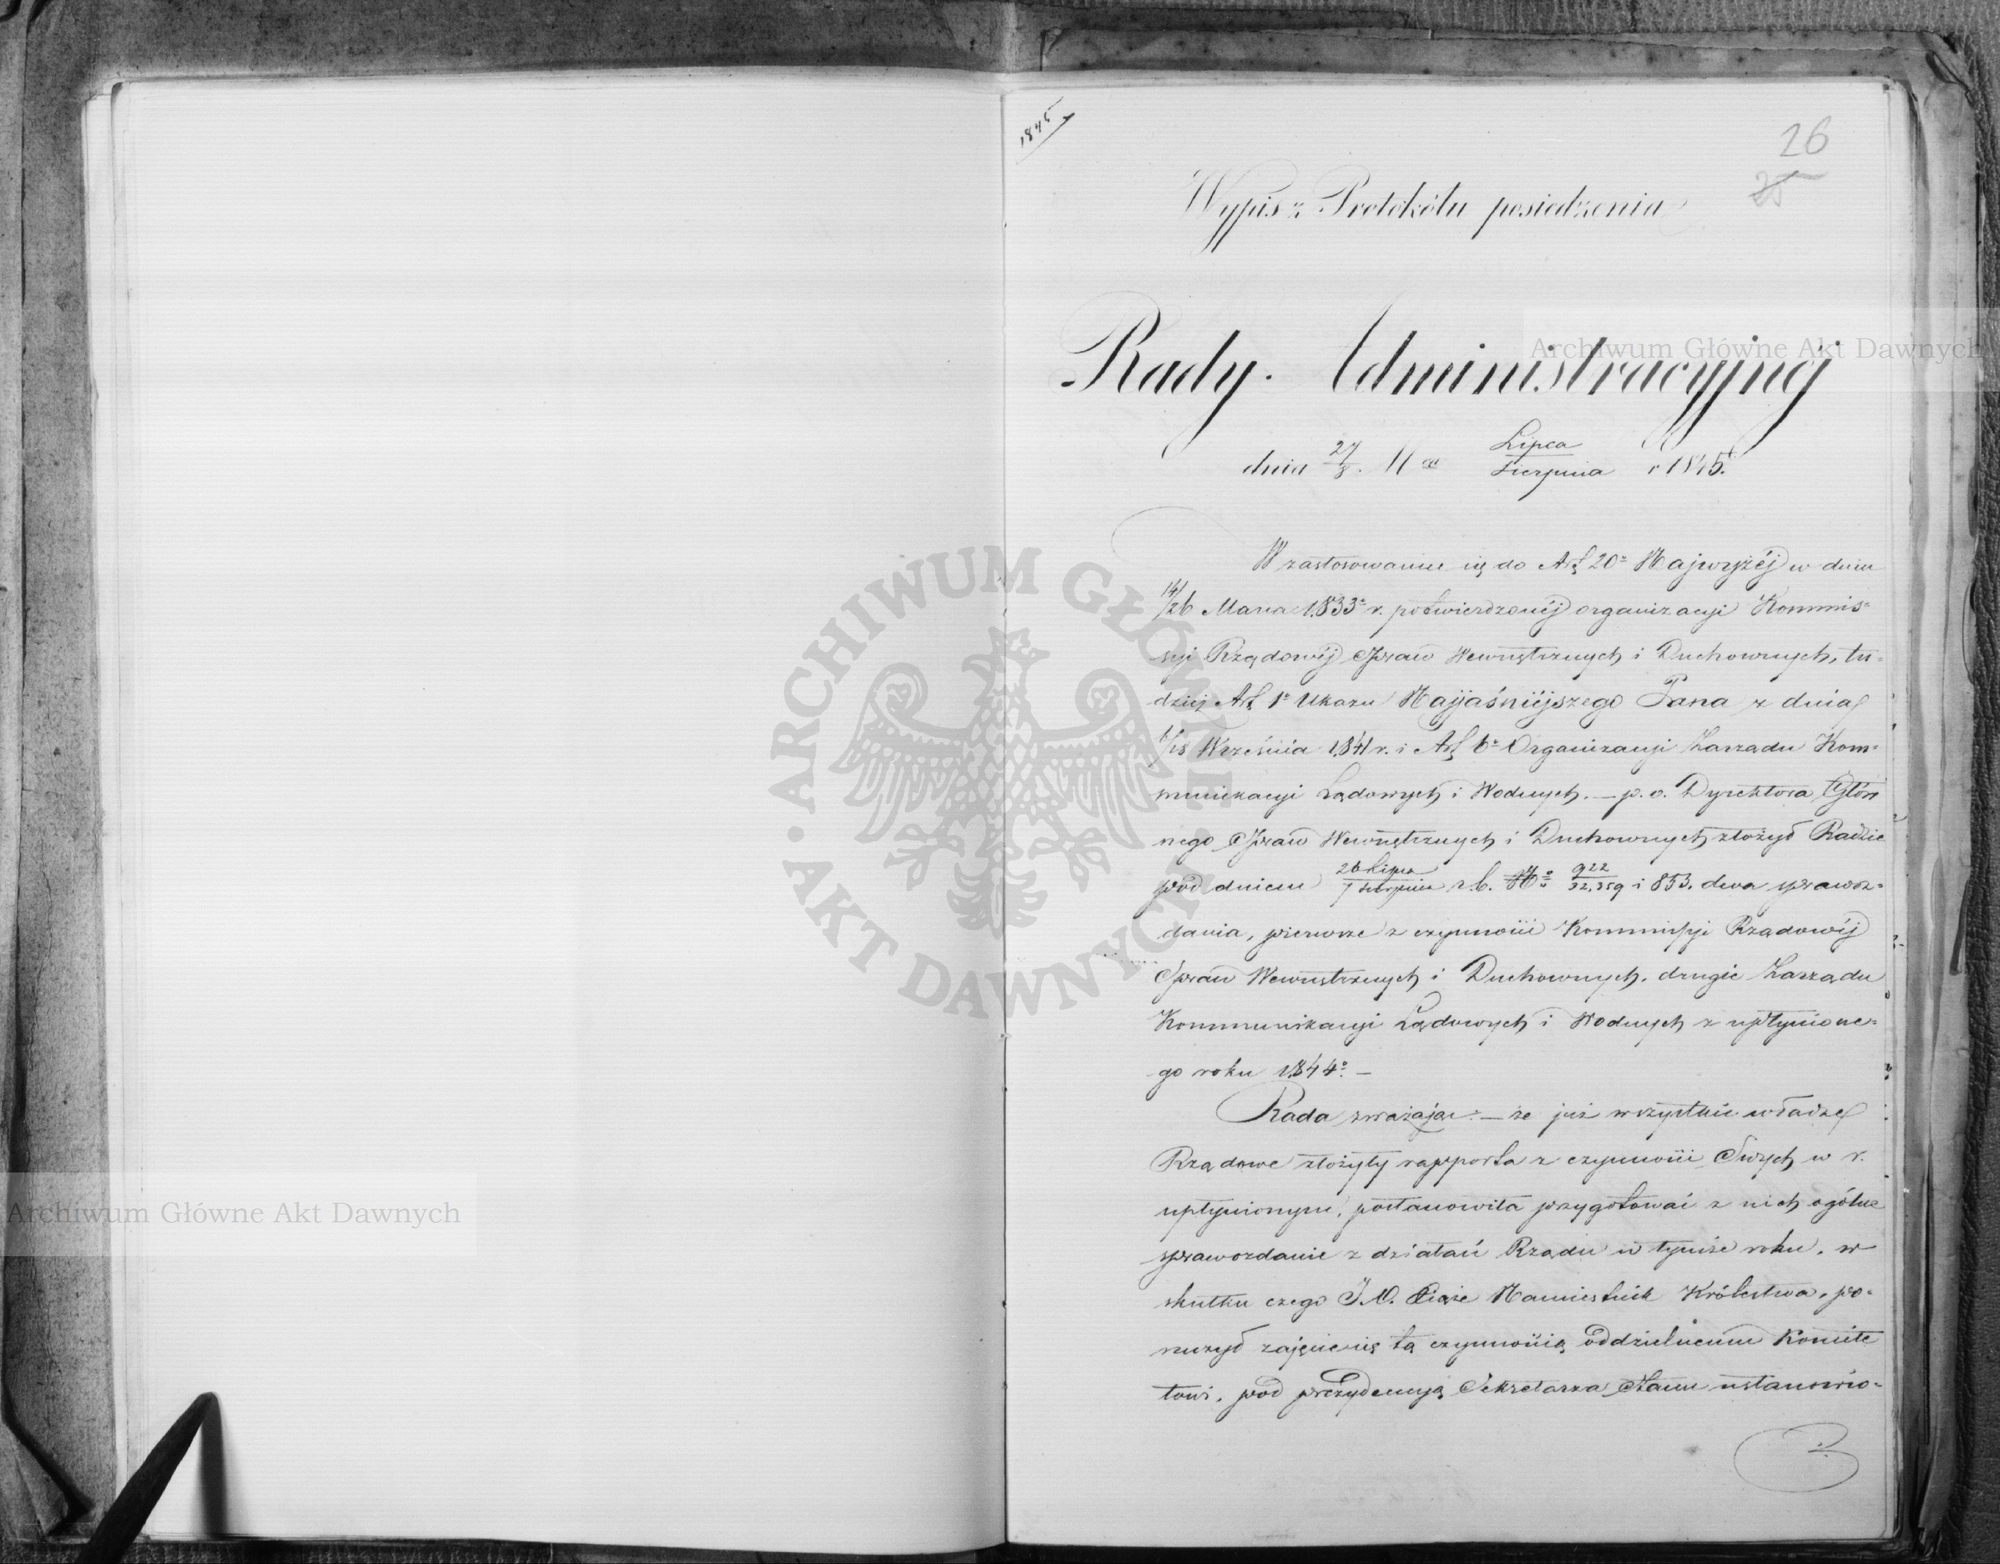 1845
26
25
Wypis z Protokółu posiedzenia
Rady Administracyjnej
dnia 27/8. Mca Lipca/Sierpnia r 1845.
W zastosowaniu się do Art 20º Najwyżéj w dniu
14/26 Marca 1833º r. potwierdzonéj organizacyi Kommis=
syi Rządowéj Spraw Wewnętrznych i Duchownych, tu=
dzież Art 1º Ukazu Najjaśniéjszego Pana z dnia
6/18 Września 1841 r. i Art 6º Organizacyi Zarządu Kom=
munikacyi Lądowych i Wodnych. — p. o. Dyrektora Głów
nego Spraw Wewnętrznych i Duchownych złożył Radzie
pod dniem 26 Lipca/7 Sierpnia r. b. Nº 922/32,359 i 853. dwa sprawoz=
dania, pierwsze z czynności Kommissyi Rządowéj
Spraw Wewnętrznych i Duchownych, drugie Zarządu
Kommunikacyi Lądowych i Wodnych z upłynione=
go roku 1844º. —
Rada zważając: — że już wszystkie władze
Rządowe złożyły rapporta z czynności Swych w r.
upłynionym, postanowiła przygotować z nich ogólne
sprawozdanie z działań Rządu w tymże roku, w
skutku czego J. O. Xiąże Namiestnik Królestwa, po=
ruczył zajęcie się tą czynnością oddzielnemu Komite
towi, pod prezydencyą Sekretarza Stanu ustanowio=
ARCHIWUM GŁÓWNE AKT DAWNYCH
Archiwum Główne Akt Dawnych
Archiwum Główne Akt Dawnych